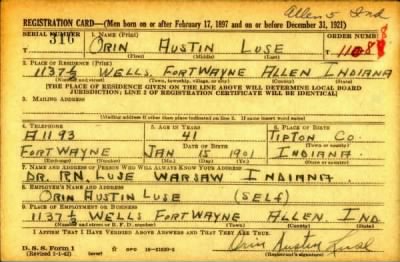 Allen 5 Ind
REGISTRATION CARD—(Men born on or after February 17, 1897 and on or before December 31, 1921)
SERIAL NUMBER 1. NAME (Print) ORDER NUMBER
316 ORIN AUSTIN LUSE T 11088
(First) (Middle) (Last)
3. PLACE OF RESIDENCE (Print)
1137½ WELLS, FORT WAYNE ALLEN INDIANA
(Number and street) (Town, township, village, or city) (County) (State)
[THE PLACE OF RESIDENCE GIVEN ON THE LINE ABOVE WILL DETERMINE LOCAL BOARD
JURISDICTION; LINE 2 OF REGISTRATION CERTIFICATE WILL BE IDENTICAL]
3. MAILING ADDRESS
[Mailing address if other than place indicated on line 2. If same insert word same]
4. TELEPHONE 5. AGE IN YEARS 6. PLACE OF BIRTH
A 1193 41 TIPTON CO.
DATE OF BIRTH (Town or county)
FORT WAYNE JAN 15 1901 INDIANA
(Exchange) (Number) (Mo.) (Day) (Yr.) (State or country)
7. NAME AND ADDRESS OF PERSON WHO WILL ALWAYS KNOW YOUR ADDRESS
DR. R.N. LUSE WARSAW INDIANA
8. EMPLOYER'S NAME AND ADDRESS
ORIN AUSTIN LUSE (SELF)
9. PLACE OF EMPLOYMENT OR BUSINESS
1137½ WELLS FORT WAYNE ALLEN, IND.
(Number and street or R. F. D. number) (Town) (County) (State)
I AFFIRM THAT I HAVE VERIFIED ABOVE ANSWERS AND THAT THEY ARE TRUE.
D. S. S. Form 1
(Revised 1-1-42) (over) Orin Austin Luse